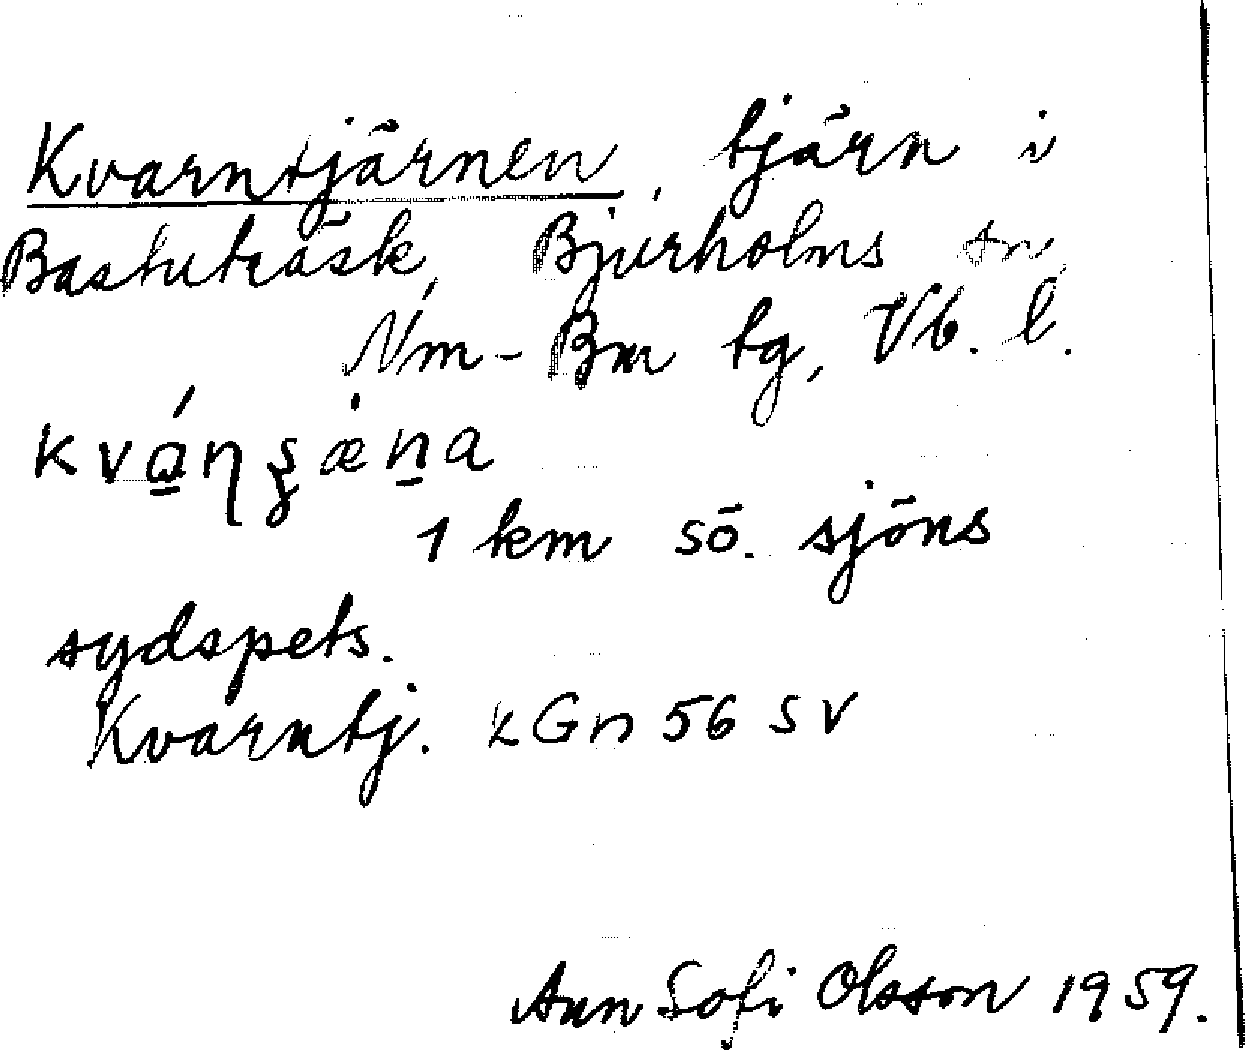 Kvarntjärnen, tjärn i
Bastuträsk, Bjurholns sn,
Nm-Bm tg, Vb. l.
1 km sö. sjöns
sydspets.
Kvarntj. kGn 56 SV
Ann Sofi Olsson 1959.